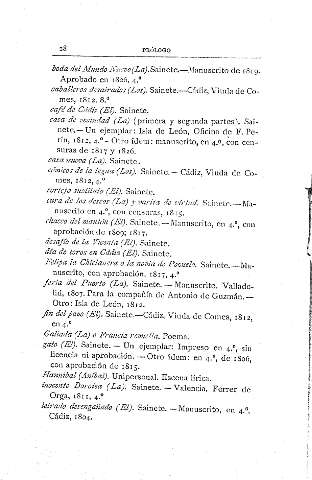 18 PRÓLOGO
boda del Mundo Nuevo (La). Sainete.—Manuscrito de 1819.
Aprobado en 1826, 4.º
caballeros desairados (Los). Sainete.—Cádiz, Viuda de Co-
mes, 1812, 8.º
café de Cádiz (El). Sainete.
casa de vecindad (La) (primera y segunda partes). Sai-
nete.—Un ejemplar: Isla de León, Oficina de F. Pe-
rín, 1812, 4.º—Otro ídem: manuscrito, en 4.º, con cen-
suras de 1817 y 1826.
casa nueva (La). Sainete.
cómicos de la legua (Los). Sainete.—Cádiz, Viuda de Co-
mes, 1812, 4.º
cortejo sustituto (El). Sainete.
cura de los deseos (La) y varita de virtud. Sainete.—Ma-
nuscrito en 4.º, con censuras, 1815.
chasco del mantón (El). Sainete.—Manuscrito, en 4.º, con
aprobación de 1809; 1817.
desafío de la Vicenta (El). Sainete.
día de toros en Cádiz (El). Sainete.
Felipa la Chiclanera o la novia de Pozuelo. Sainete.—Ma-
nuscrito, con aprobación. 1817, 4.º
feria del Puerto (La). Sainete.—Manuscrito. Vallado-
lid, 1807. Para la compañía de Antonio de Guzmán.—
Otro: Isla de León, 1812.
fin del pavo (El). Sainete.—Cádiz, Viuda de Comes, 1812,
en 4.º
Galiada (La) o Francia revuelta. Poema.
gato (El). Sainete.—Un ejemplar: Impreso en 4.º, sin
licencia ni aprobación.—Otro ídem: en 4.º, de 1806,
con aprobación de 1815.
Hannibal (Aníbal). Unipersonal. Escena lírica.
inocente Dorotea (La). Sainete.—Valencia, Ferrer de
Orga, 1811, 4.º
letrado desengañado (El). Sainete.—Manuscrito, en 4.º,
Cádiz, 1804.